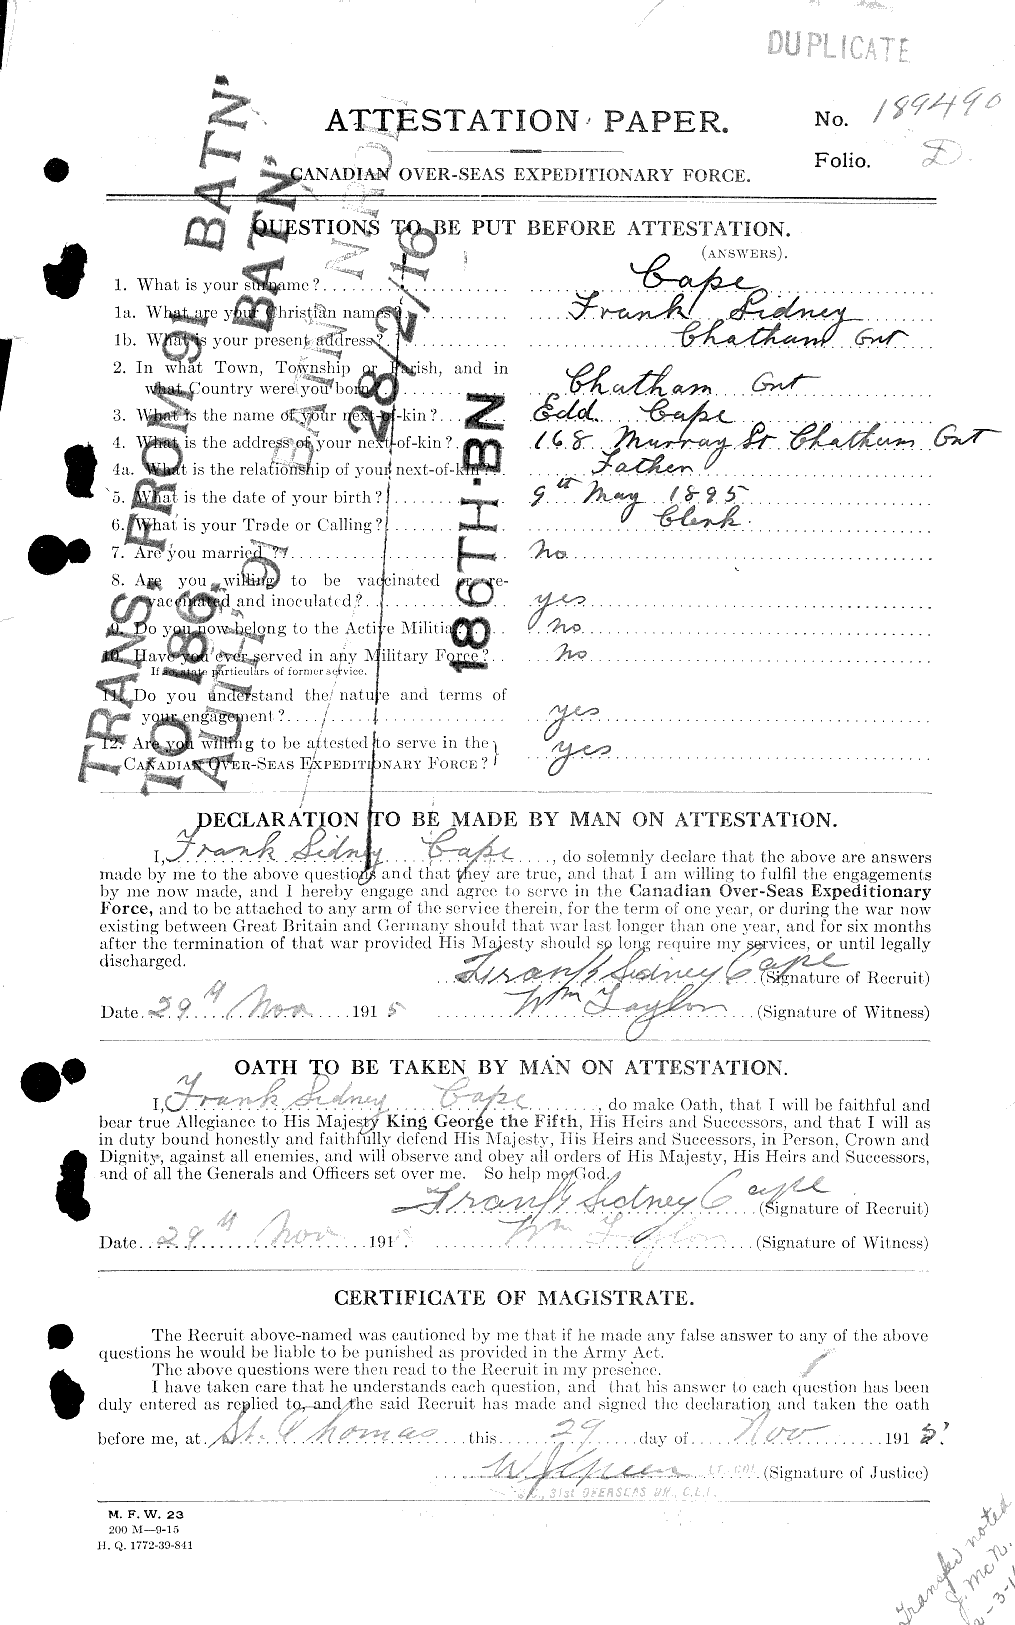 DUPLICATE
ATTESTATION PAPER.
No. 189490
Folio. D.
CANADIAN OVER-SEAS EXPEDITIONARY FORCE.
QUESTIONS TO BE PUT BEFORE ATTESTATION.
(ANSWERS).
1. What is your surname? Cape
1a. What are your Christian names? Frank Sidney
1b. What is your present address? Chatham Ont
2. In what Town, Township or Parish, and in
what Country were you born? Chatham Ont
3. What is the name of your next-of-kin? Edd. Cape
4. What is the address of your next-of-kin? 168 Murray St Chatham Ont
4a. What is the relationship of your next-of-kin? Father
5. What is the date of your birth? 9th May 1895
6. What is your Trade or Calling? Clerk.
7. Are you married? No
8. Are you willing to be vaccinated or re-
vaccinated and inoculated? yes
9. Do you now belong to the Active Militia? No
10. Have you ever served in any Military Force? No
If so, state particulars of former service.
11. Do you understand the nature and terms of
your engagement? yes
12. Are you willing to be attested to serve in the
CANADIAN OVER-SEAS EXPEDITIONARY FORCE? yes
TRANS. FROM 91 BATN'
TO 186, BATN'
AUTH, 91 BATN
28/2/16
186TH·BN
DECLARATION TO BE MADE BY MAN ON ATTESTATION.
I, Frank Sidney Cape, do solemnly declare that the above are answers
made by me to the above questions and that they are true, and that I am willing to fulfil the engagements
by me now made, and I hereby engage and agree to serve in the Canadian Over-Seas Expeditionary
Force, and to be attached to any arm of the service therein, for the term of one year, or during the war now
existing between Great Britain and Germany should that war last longer than one year, and for six months
after the termination of that war provided His Majesty should so long require my services, or until legally
discharged.
Frank Sidney Cape (Signature of Recruit)
Date 29th Nov 1915 Wm Taylor (Signature of Witness)
OATH TO BE TAKEN BY MAN ON ATTESTATION.
I, Frank Sidney Cape, do make Oath, that I will be faithful and
bear true Allegiance to His Majesty King George the Fifth, His Heirs and Successors, and that I will as
in duty bound honestly and faithfully defend His Majesty, His Heirs and Successors, in Person, Crown and
Dignity, against all enemies, and will observe and obey all orders of His Majesty, His Heirs and Successors,
and of all the Generals and Officers set over me. So help me God.
Frank Sidney Cape (Signature of Recruit)
Date 29th Nov 191 Wm Taylor (Signature of Witness)
CERTIFICATE OF MAGISTRATE.
The Recruit above-named was cautioned by me that if he made any false answer to any of the above
questions he would be liable to be punished as provided in the Army Act.
The above questions were then read to the Recruit in my presence.
I have taken care that he understands each question, and that his answer to each question has been
duly entered as replied to, and the said Recruit has made and signed the declaration and taken the oath
before me, at St. Thomas this 29 day of Nov 1915
W J Green LT. COL. (Signature of Justice)
O.C., 91st OVERSEAS BN., C.E.F.
M. F. W. 23
200 M—9-15
H. Q. 1772-39-841
Transfer noted
J. McN.